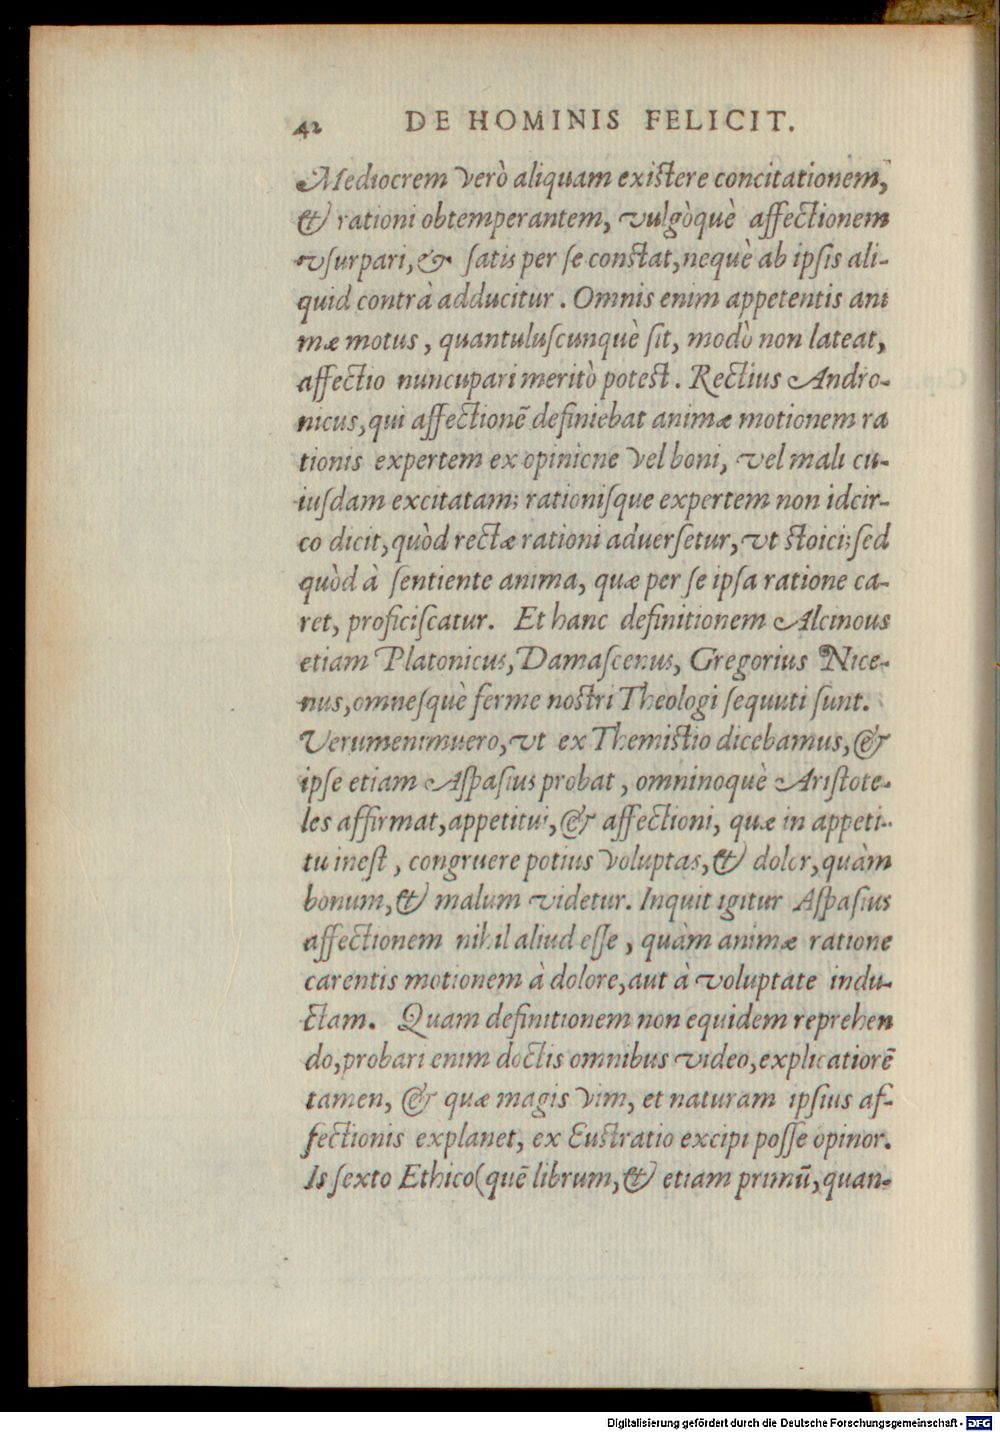 42 DE HOMINIS FELICIT.
Mediocrem verò aliquam existere concitationem,
& rationi obtemperantem, vulgòquè affectionem
vſurpari, & ſatis per ſe constat, nequè ab ipſis ali-
quid contrà adducitur. Omnis enim appetentis ani
mæ motus, quantuluſcunquè ſit, modò non lateat,
affectio nuncupari meritò potest. Rectius Andro-
nicus, qui affectionẽ definiebat animæ motionem ra
tionis expertem ex opinione vel boni, vel mali cu-
iuſdam excitatam; rationiſque expertem non idcir-
co dicit, quòd rectæ rationi aduerſetur, vt stoici; sed
quòd à ſentiente anima, quæ per ſe ipſa ratione ca-
ret, proficiſcatur. Et hanc definitionem Alcinous
etiam Platonicus, Damaſcenus, Gregorius Nice-
nus, omneſquè ferme nostri Theologi ſequuti ſunt.
Verumenimuero, vt ex Themistio dicebamus, &
ipſe etiam Aſpaſius probat, omninoquè Ariſtote-
les affirmat, appetitui, & affectioni, quæ in appeti-
tu ineſt, congruere potius voluptas, & dolor, quàm
bonum, & malum videtur. Inquit igitur Aſpaſius
affectionem nihil aliud eſſe, quàm animæ ratione
carentis motionem à dolore, aut à voluptate indu-
ctam. Quam definitionem non equidem reprehen
do, probari enim doctis omnibus video, explicatiorẽ
tamen, & quæ magis vim, et naturam ipſius af-
fectionis explanet, ex Eustratio excipi poſſe opinor.
Is ſexto Ethico(quẽ librum, & etiam primũ, quan-
Digitalisierung gefördert durch die Deutsche Forschungsgemeinschaft - DFG